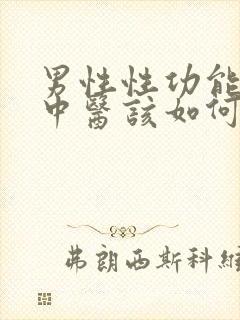 男性性功能
中醫該如何
弗朗西斯科維